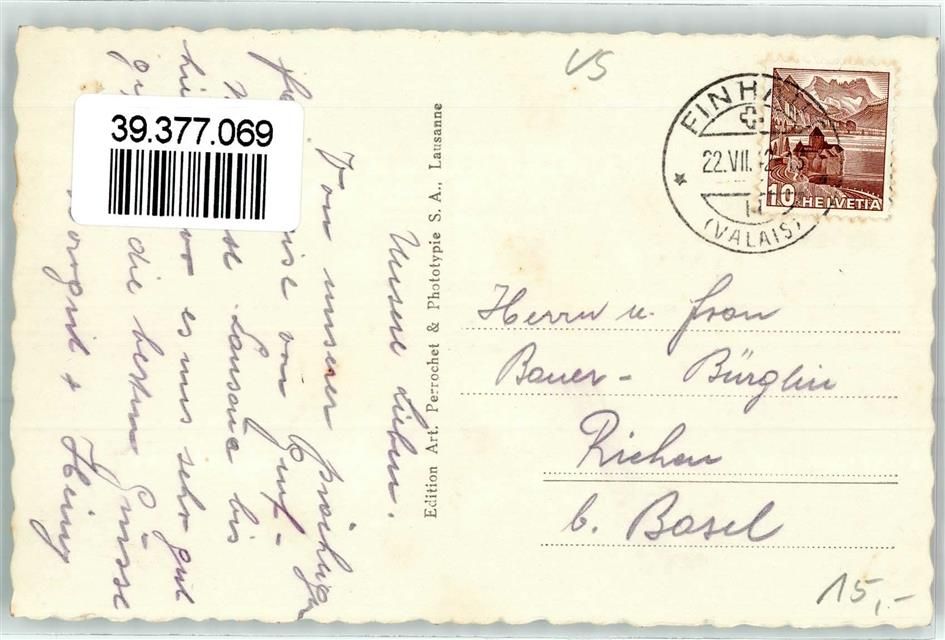 VS
39.377.069
FINHAUT
22.VII.42
(VALAIS)
10 HELVETIA
Edition Art. Perrochet & Phototypie S. A., Lausanne
Unsere Lieben.
Von unserer prächtigen
von Genf -
Lausane bis
wo es uns sehr gut
die besten Grüsse
+ Heiny
Herrn u. Frau
Bauer - Bürglin
Riehen
b. Basel
15,-